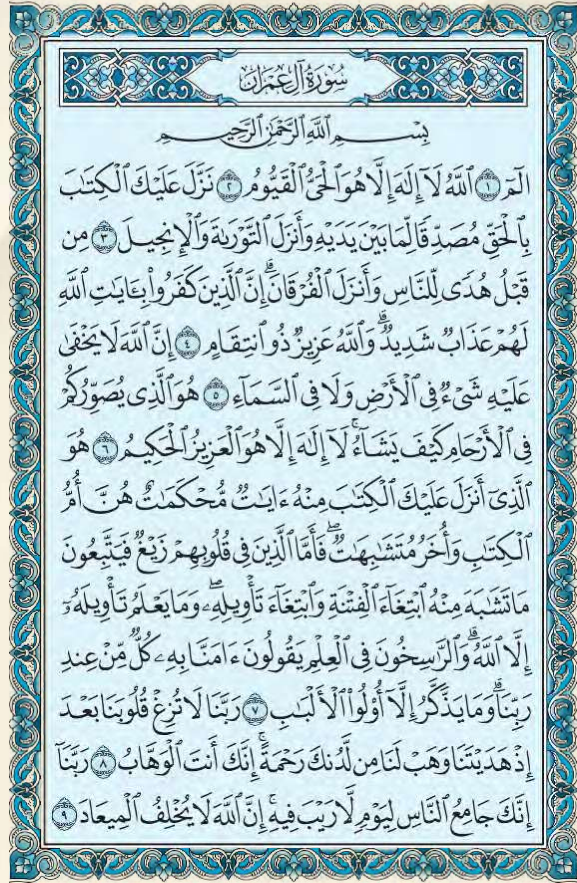 سُورَةُ آلِ عِمْرَانَ
بِسْمِ اللَّهِ الرَّحْمَٰنِ الرَّحِيمِ
الٓمٓ ١ ٱللَّهُ لَآ إِلَٰهَ إِلَّا هُوَ ٱلْحَىُّ ٱلْقَيُّومُ ٢ نَزَّلَ عَلَيْكَ ٱلْكِتَٰبَ
بِٱلْحَقِّ مُصَدِّقًا لِّمَا بَيْنَ يَدَيْهِ وَأَنزَلَ ٱلتَّوْرَىٰةَ وَٱلْإِنجِيلَ ٣ مِن
قَبْلُ هُدًى لِّلنَّاسِ وَأَنزَلَ ٱلْفُرْقَانَۗ إِنَّ ٱلَّذِينَ كَفَرُوا۟ بِـَٔايَٰتِ ٱللَّهِ
لَهُمْ عَذَابٌ شَدِيدٌۗ وَٱللَّهُ عَزِيزٌ ذُو ٱنتِقَامٍ ٤ إِنَّ ٱللَّهَ لَا يَخْفَىٰ
عَلَيْهِ شَىْءٌ فِى ٱلْأَرْضِ وَلَا فِى ٱلسَّمَآءِ ٥ هُوَ ٱلَّذِى يُصَوِّرُكُمْ
فِى ٱلْأَرْحَامِ كَيْفَ يَشَآءُۚ لَآ إِلَٰهَ إِلَّا هُوَ ٱلْعَزِيزُ ٱلْحَكِيمُ ٦ هُوَ
ٱلَّذِىٓ أَنزَلَ عَلَيْكَ ٱلْكِتَٰبَ مِنْهُ ءَايَٰتٌ مُّحْكَمَٰتٌ هُنَّ أُمُّ
ٱلْكِتَٰبِ وَأُخَرُ مُتَشَٰبِهَٰتٌۖ فَأَمَّا ٱلَّذِينَ فِى قُلُوبِهِمْ زَيْغٌ فَيَتَّبِعُونَ
مَا تَشَٰبَهَ مِنْهُ ٱبْتِغَآءَ ٱلْفِتْنَةِ وَٱبْتِغَآءَ تَأْوِيلِهِۦۖ وَمَا يَعْلَمُ تَأْوِيلَهُۥٓ
إِلَّا ٱللَّهُۗ وَٱلرَّٰسِخُونَ فِى ٱلْعِلْمِ يَقُولُونَ ءَامَنَّا بِهِۦ كُلٌّ مِّنْ عِندِ
رَبِّنَاۗ وَمَا يَذَّكَّرُ إِلَّآ أُو۟لُوا۟ ٱلْأَلْبَٰبِ ٧ رَبَّنَا لَا تُزِغْ قُلُوبَنَا بَعْدَ
إِذْ هَدَيْتَنَا وَهَبْ لَنَا مِن لَّدُنكَ رَحْمَةًۚ إِنَّكَ أَنتَ ٱلْوَهَّابُ ٨ رَبَّنَآ
إِنَّكَ جَامِعُ ٱلنَّاسِ لِيَوْمٍ لَّا رَيْبَ فِيهِۚ إِنَّ ٱللَّهَ لَا يُخْلِفُ ٱلْمِيعَادَ ٩